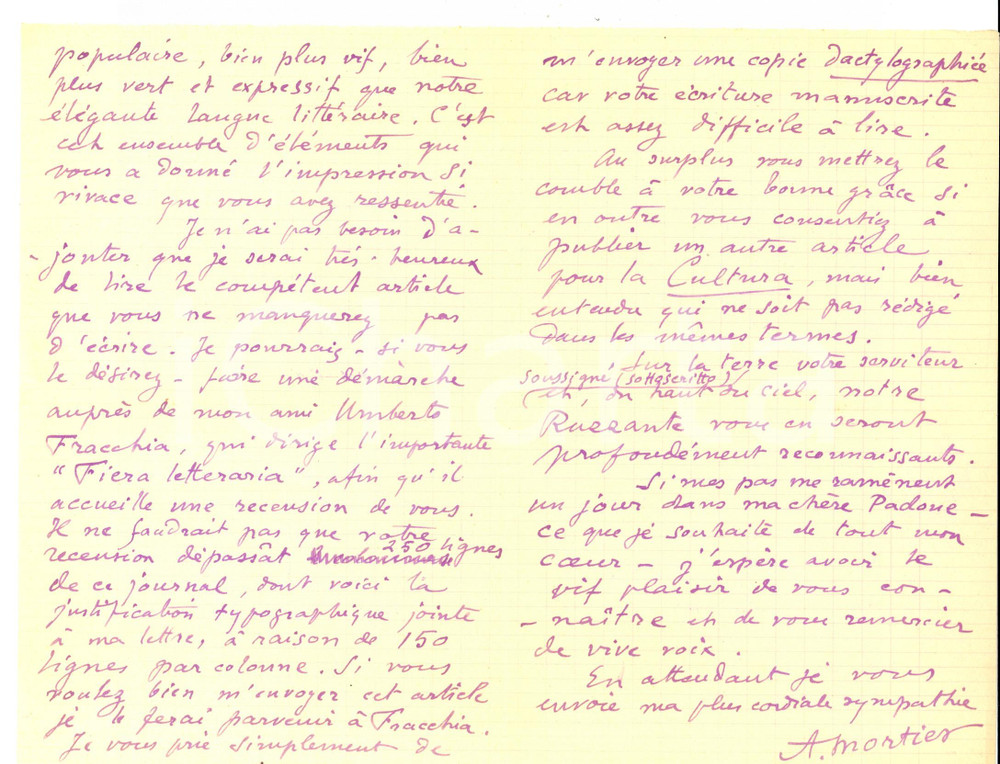 populaire, bien plus vif, bien
plus vert et expressif que notre
élégante langue littéraire. C'est
cet ensemble d'éléments qui
vous a donné l'impression si
vivace que vous avez ressentie.
Je n'ai pas besoin d'a-
-jouter que je serai très heureux
de lire le compétent article
que vous ne manquerez pas
d'écrire. Je pourrais - si vous
le désirez - faire une démarche
auprès de mon ami Umberto
Fracchia, qui dirige l'importante
"Fiera letteraria", afin qu'il
accueille une recension de vous.
Il ne faudrait pas que votre
recension dépassât 250 lignes
de ce journal, dont voici la
justification typographique jointe
à ma lettre, à raison de 150
lignes par colonne. Si vous
voulez bien m'envoyer cet article
je le ferai parvenir à Fracchia.
Je vous prie simplement de
m'envoyer une copie dactylographiée
car votre écriture manuscrite
est assez difficile à lire.
Au surplus vous mettrez le
comble à votre bonne grâce si
en outre vous consentiez à
publier un autre article
pour la Cultura, mais bien
entendu qui ne soit pas rédigé
dans les mêmes termes.
Sur la terre votre serviteur
soussigné (sottoscritto)
et, du haut du ciel, notre
Ruzzante vous en seront
profondément reconnaissants.
Si mes pas me ramènent
un jour dans ma chère Padoue -
ce que je souhaite de tout mon
cœur - j'espère avoir le
vif plaisir de vous con-
-naître et de vous remercier
de vive voix.
En attendant je vous
envoie ma plus cordiale sympathie
A. Mortier